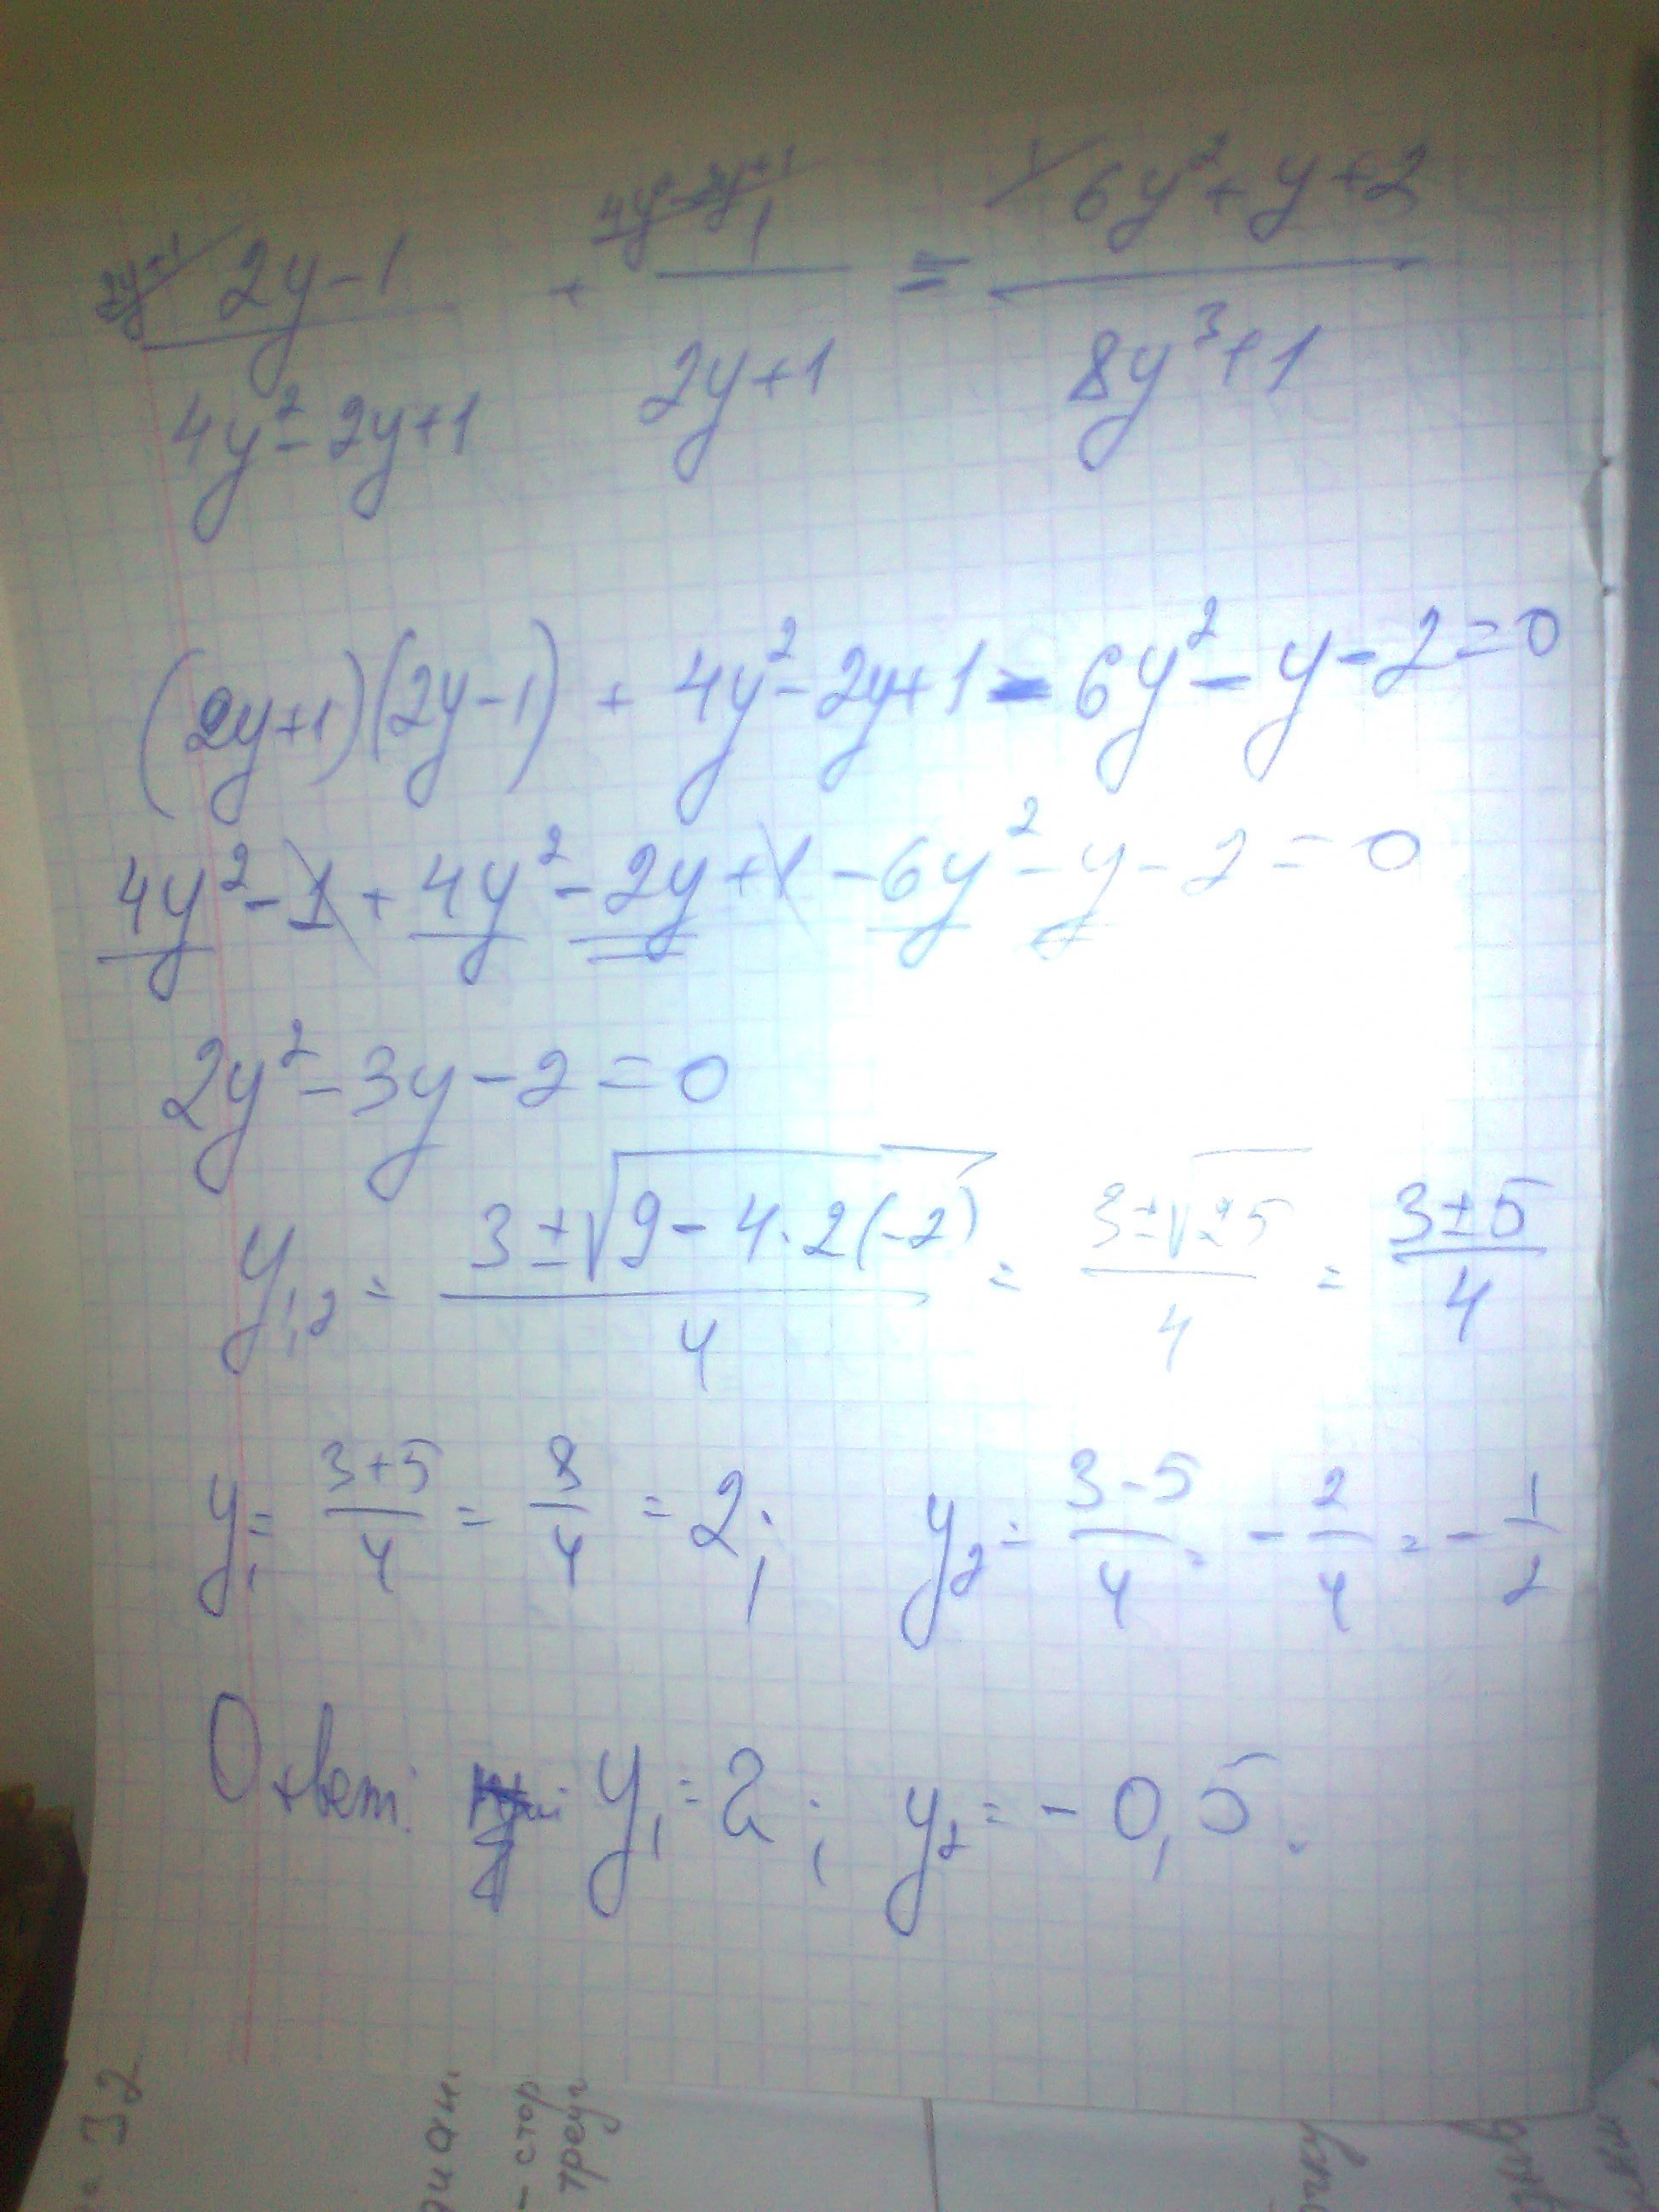 2y+1/ (2y-1)/(4y²-2y+1) + 4y²-2y+1/ 1/(2y+1) = 1/ (6y²+y+2)/(8y³+1)
(2y+1)(2y-1) + 4y²-2y+1 - 6y²-y-2=0
4y²-1+4y²-2y+1-6y²-y-2=0
2y²-3y-2=0
y₁,₂ = (3±√(9-4·2(-2)))/4 = (3±√25)/4 = (3±5)/4
y₁ = (3+5)/4 = 8/4 = 2; y₂ = (3-5)/4 = -2/4 = -1/2
Ответ: y₁=2; y₂=-0,5.
32
- стор
треуг